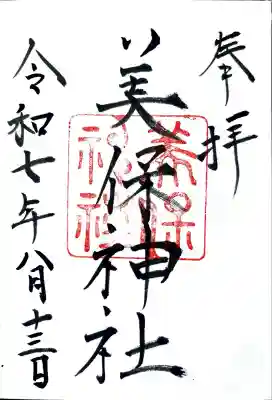 奉拝
美保神社
美保
神社
令和七年八月十三日